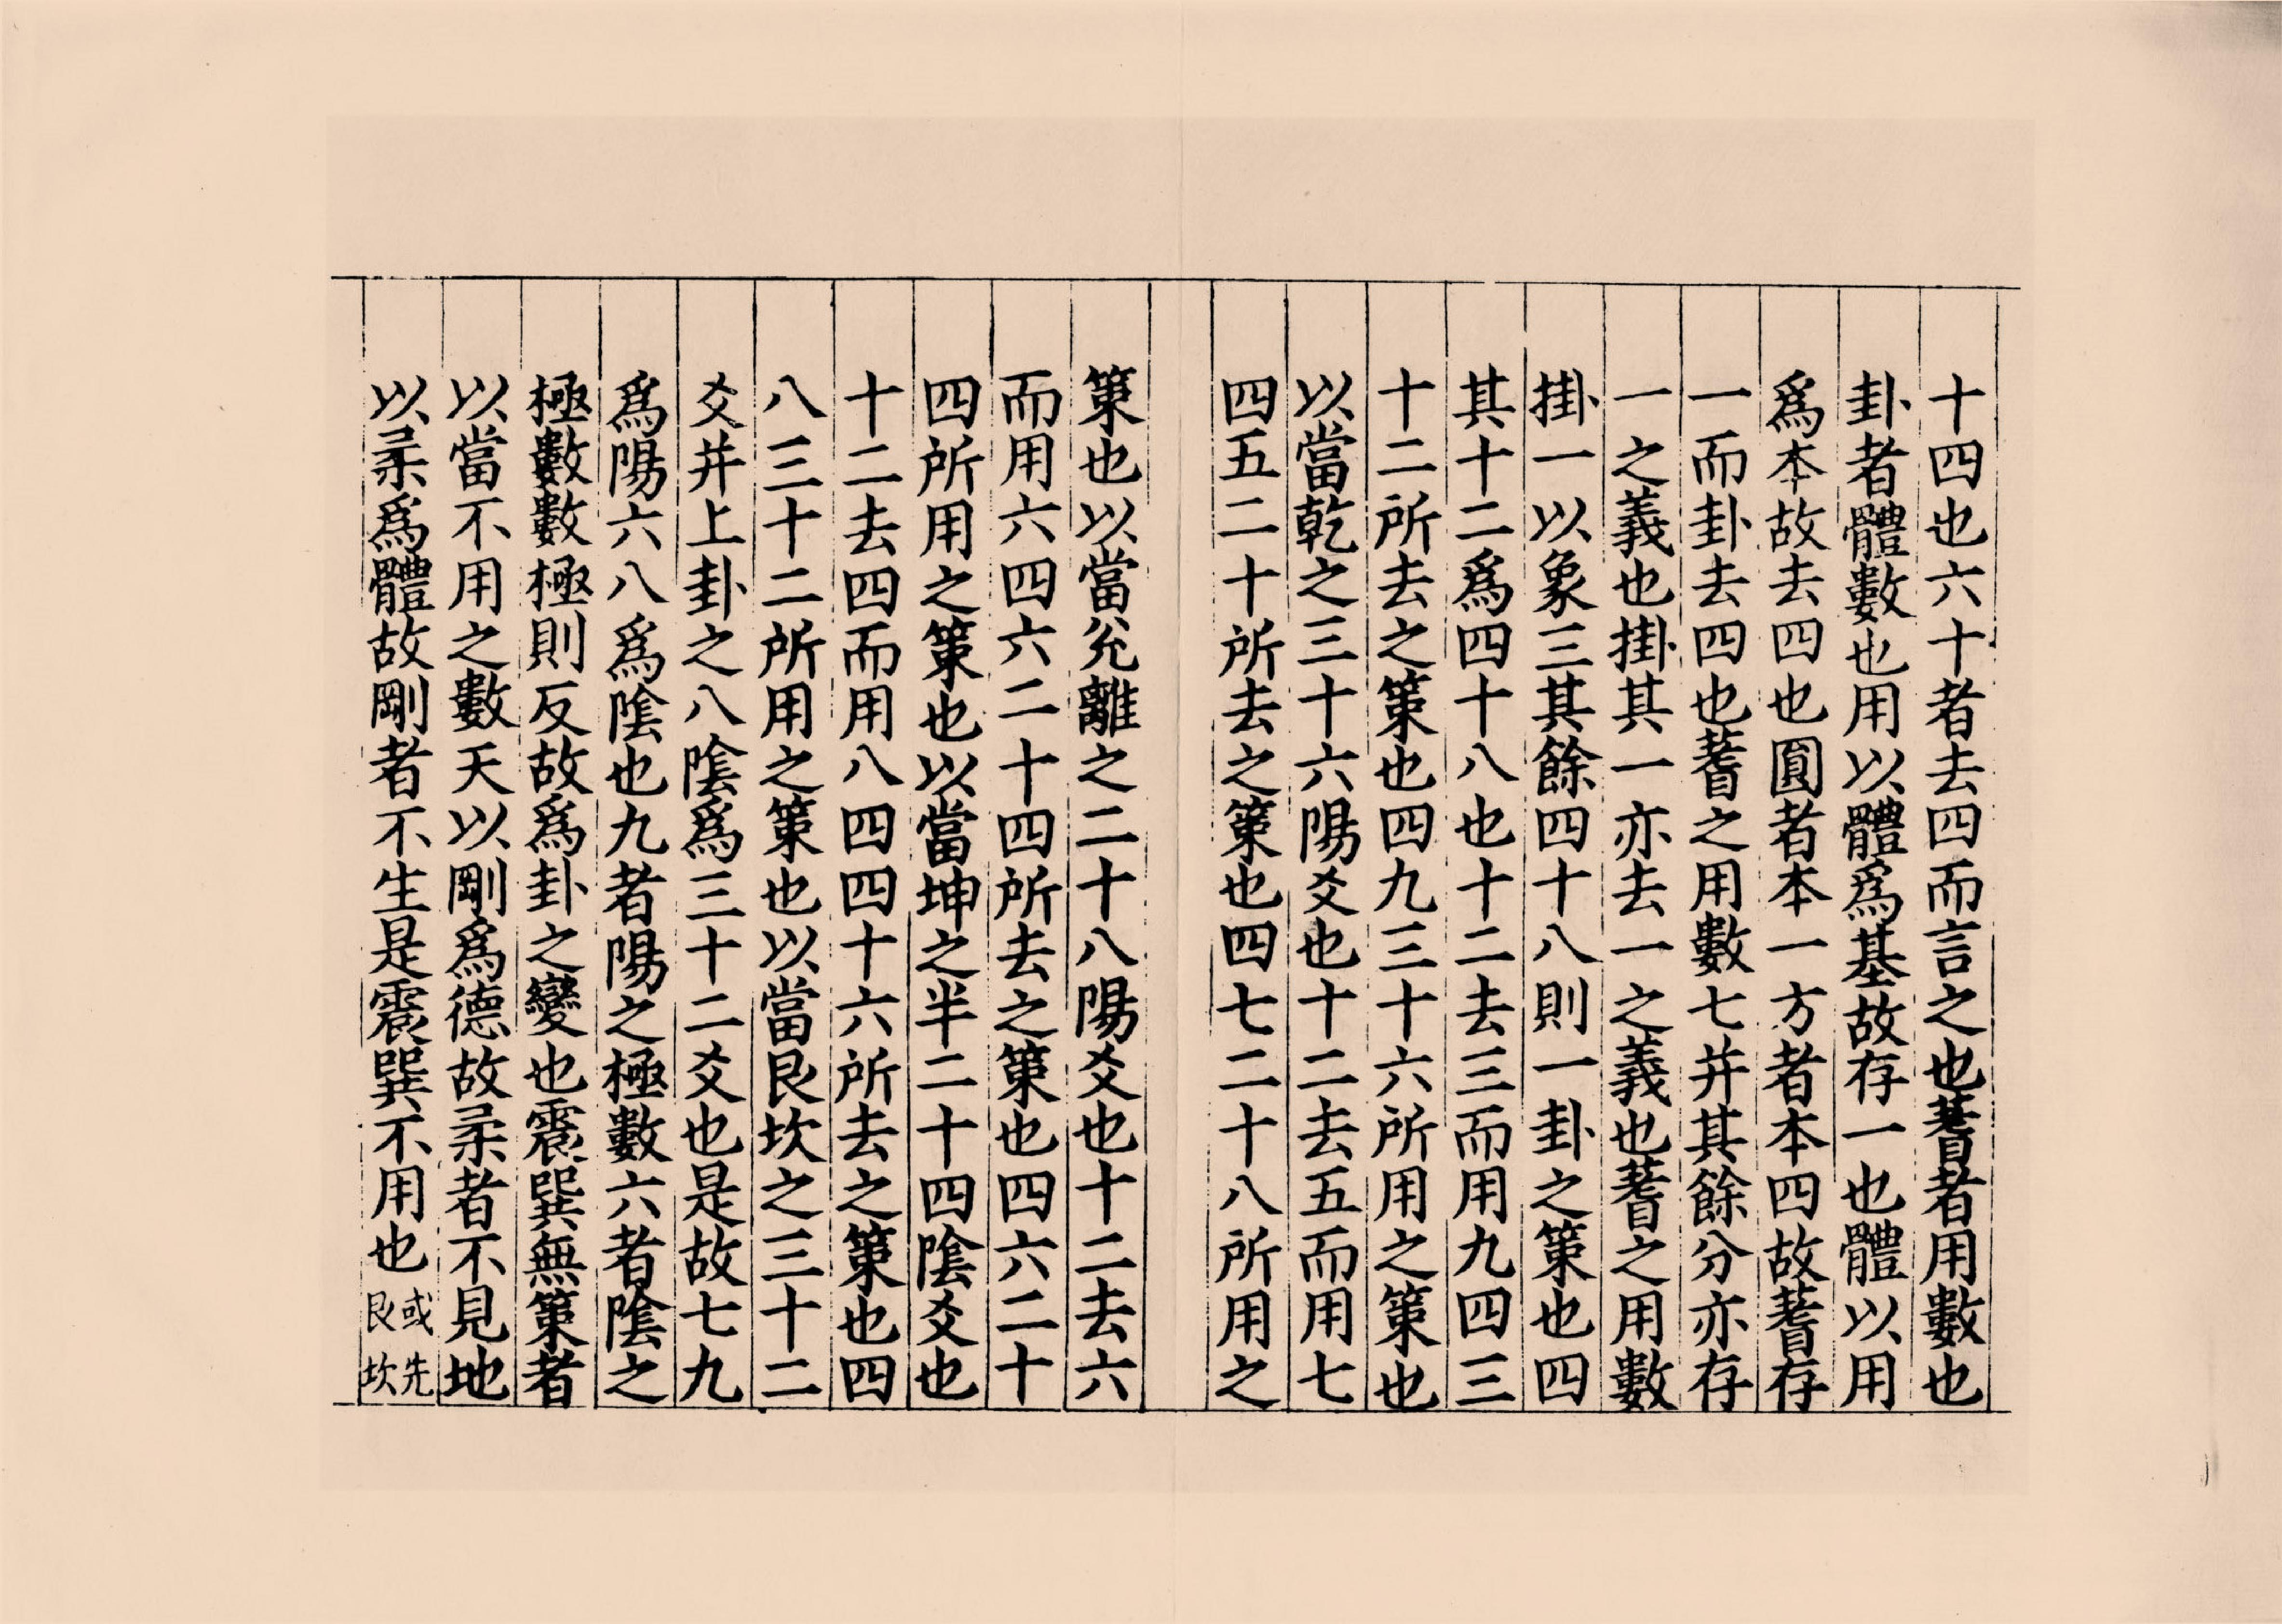 十四也六十者去四而言之也蓍者用數也
卦者體數也用以體爲基故存一也體以用
爲本故去四也圓者本一方者本四故蓍存
一而卦去四也蓍之用數七并其餘分亦存
一之義也掛其一亦去一之義也蓍之用數
掛一以象三其餘四十八則一卦之策也四
其十二爲四十八也十二去三而用九四三
十二所去之策也四九三十六所用之策也
以當乾之三十六陽爻也十二去五而用七
四五二十所去之策也四七二十八所用之
策也以當兊離之二十八陽爻也十二去六
而用六四六二十四所去之策也四六二十
四所用之策也以當坤之半二十四陰爻也
十二去四而用八四四十六所去之策也四
八三十二所用之策也以當艮坎之三十二
爻并上卦之八陰爲三十二爻也是故七九
爲陽六八爲陰也九者陽之極數六者陰之
極數數極則反故爲卦之變也震巽無策者
以當不用之數天以剛爲德故柔者不見地
以柔爲體故剛者不生是震巽不用也或先
艮坎